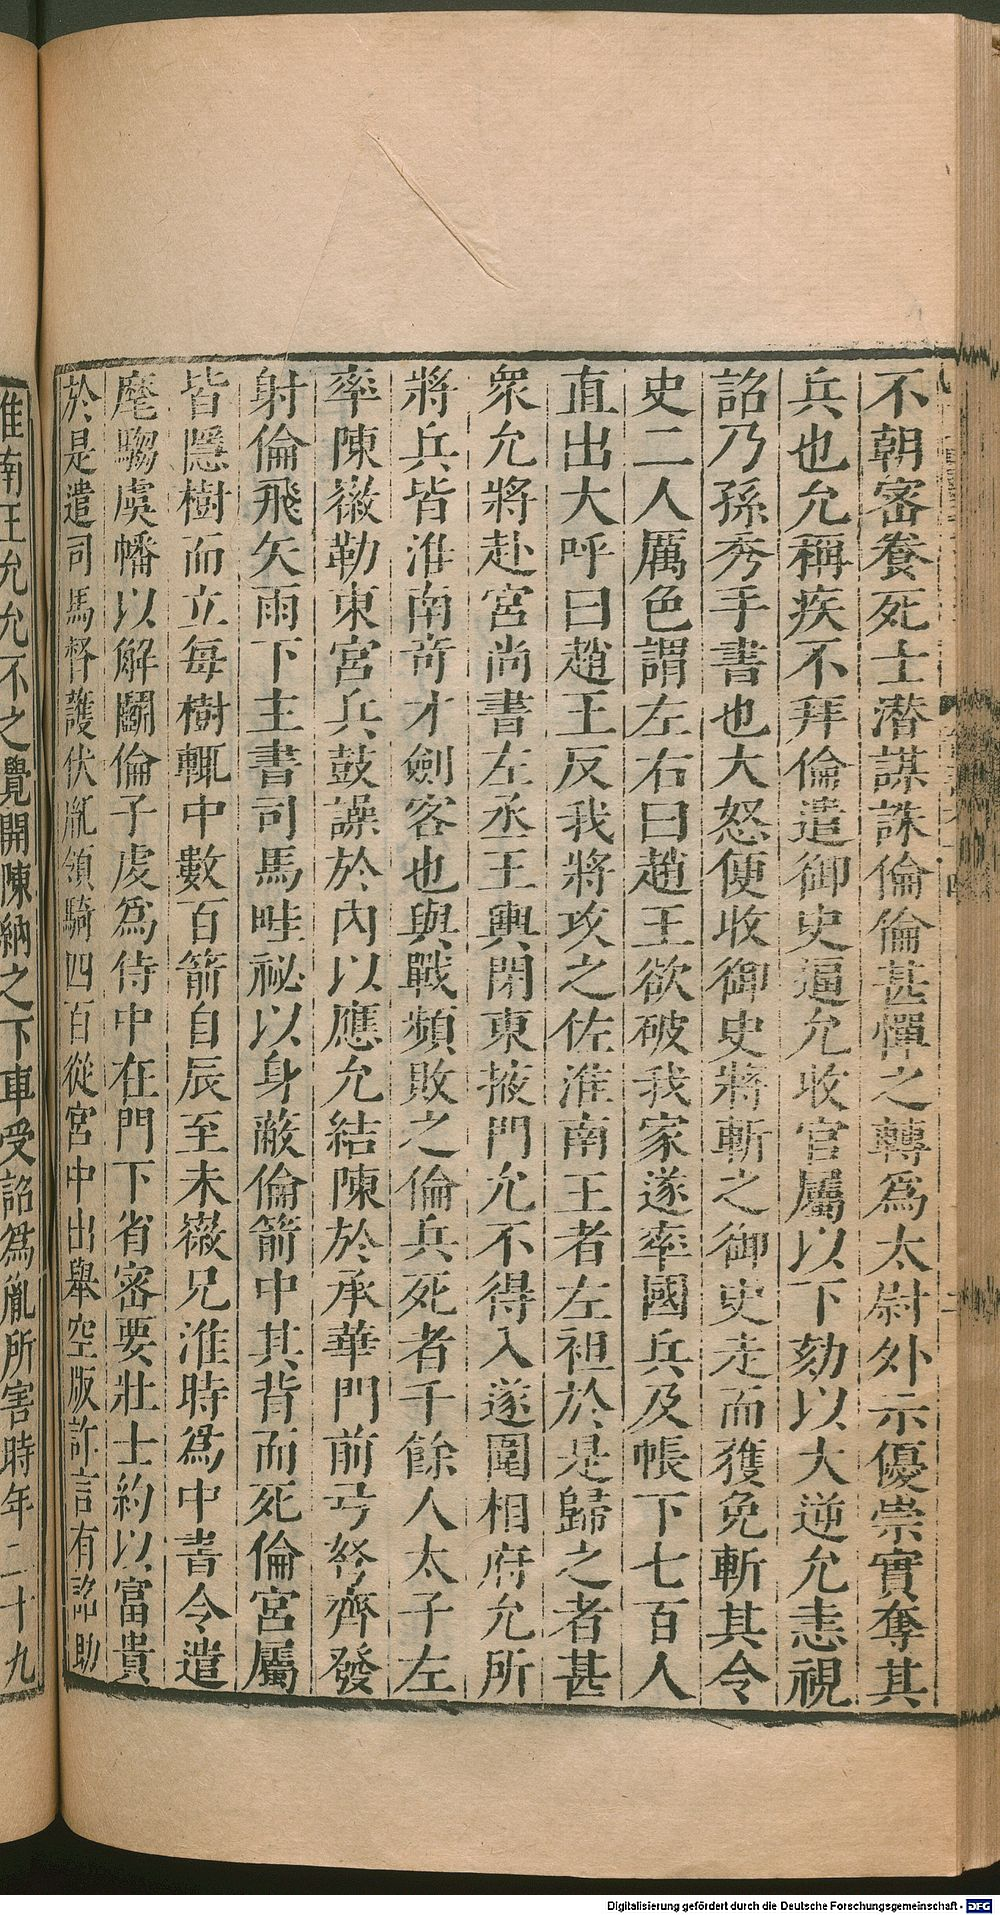 不朝密養死士潜謀誅倫倫甚憚之轉爲太尉外示優崇實奪其
兵也允稱疾不拜倫遣御史逼允收官屬以下劾以大逆允恚視
詔乃孫秀手書也大怒便收御史將斬之御史走而獲免斬其令
史二人厲色謂左右曰趙王欲破我家遂率國兵及帳下七百人
直出大呼曰趙王反我將攻之佐淮南王者左袒於是歸之者甚
衆允將赴宮尚書左丞王輿閉東掖門允不得入遂圍相府允所
將兵皆淮南奇才劍客也與戰頻敗之倫兵死者千餘人太子左
率陳徽勒東宮兵鼓譟於內以應允結陳於承華門前弓弩齊發
射倫飛矢雨下主書司馬畦祕以身蔽倫箭中其背而死倫宮屬
皆隱樹而立每樹輒中數百箭自辰至未徽兄淮時爲中書令遣
麾騶虞幡以解鬭倫子虔爲侍中在門下省密要壯士約以富貴
於是遣司馬督護伏胤領騎四百從宮中出舉空版詐言有詔助
淮南王允允不之覺開陳納之下車受詔爲胤所害時年二十九
Digitalisierung gefördert durch die Deutsche Forschungsgemeinschaft - DFG